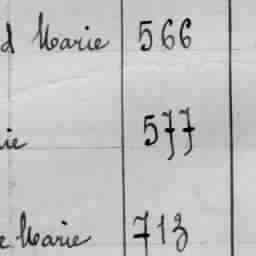 d Marie 566
ie 577
e Marie 713